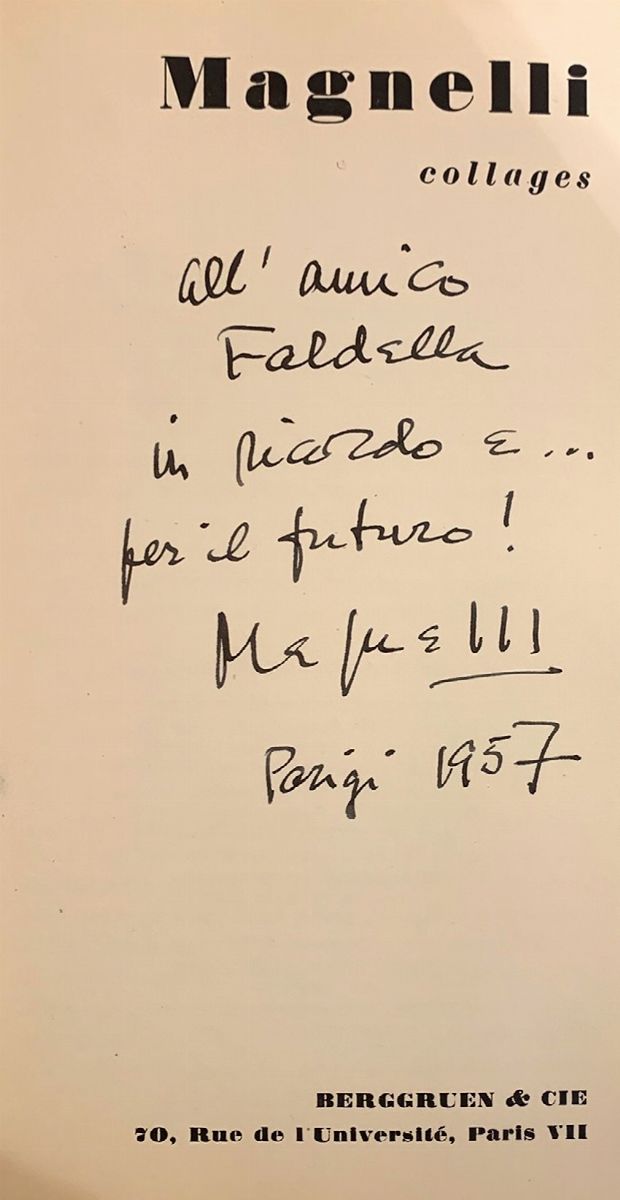 Magnelli
collages
all' amico
Faldella
in ricordo e ...
per il futuro!
Magnelli
Parigi 1957
BERGGRUEN & CIE
70, Rue de l'Université, Paris VII